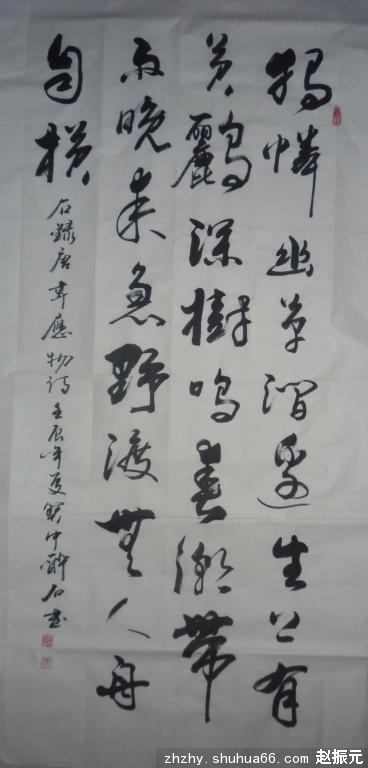 獨憐幽草澗邊生上有
黃鸝深樹鳴春潮帶
雨晚來急野渡無人舟
自橫
右錄唐韋應物詩壬辰年夏中醉石書
zhzhy.shuhua66.com 赵振元